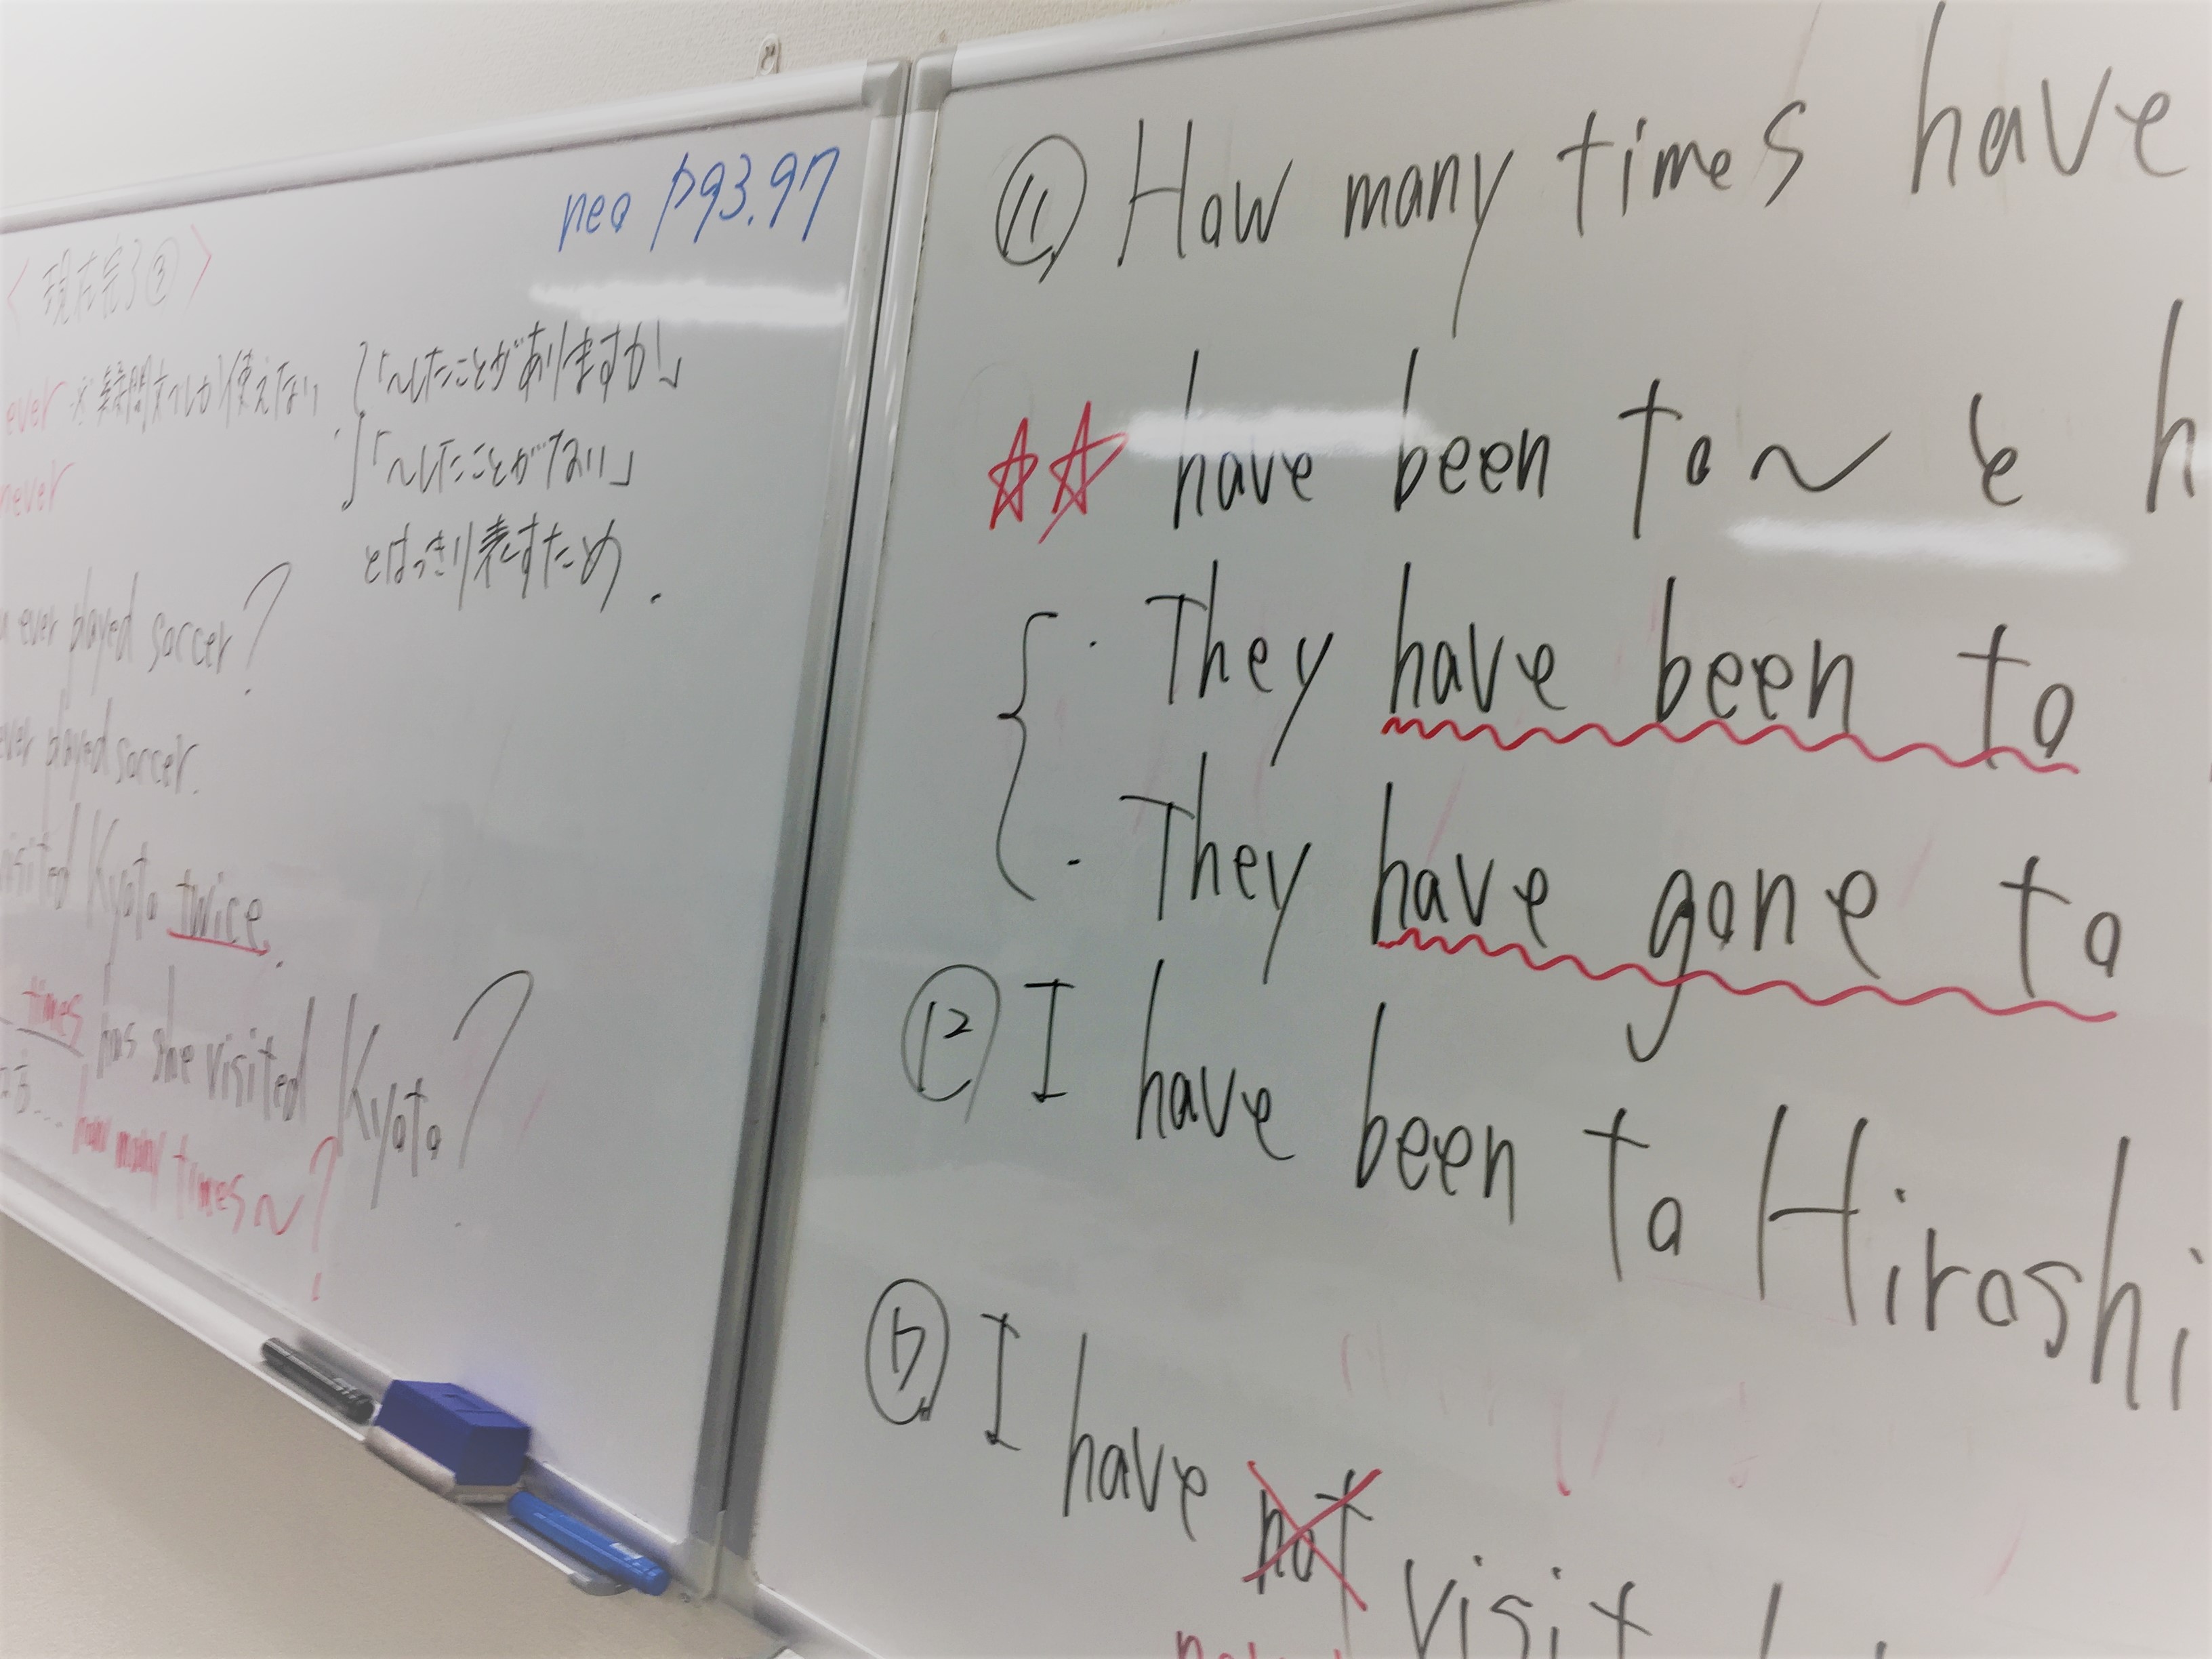 neo P93.97
〈現在完了②〉
ever ※疑問文でしか使えない 「〜したことがありますか」
never 「〜したことがない」
とはっきり表すため.
ever played soccer?
ever played soccer.
visited Kyoto twice.
times has she visited Kyoto?
how many times〜?
⑪ How many times have
☆☆ have been to〜 と h
· They have been to
· They have gone to
⑫ I have been to Hiroshi
I have not visit